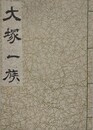 大塚一族